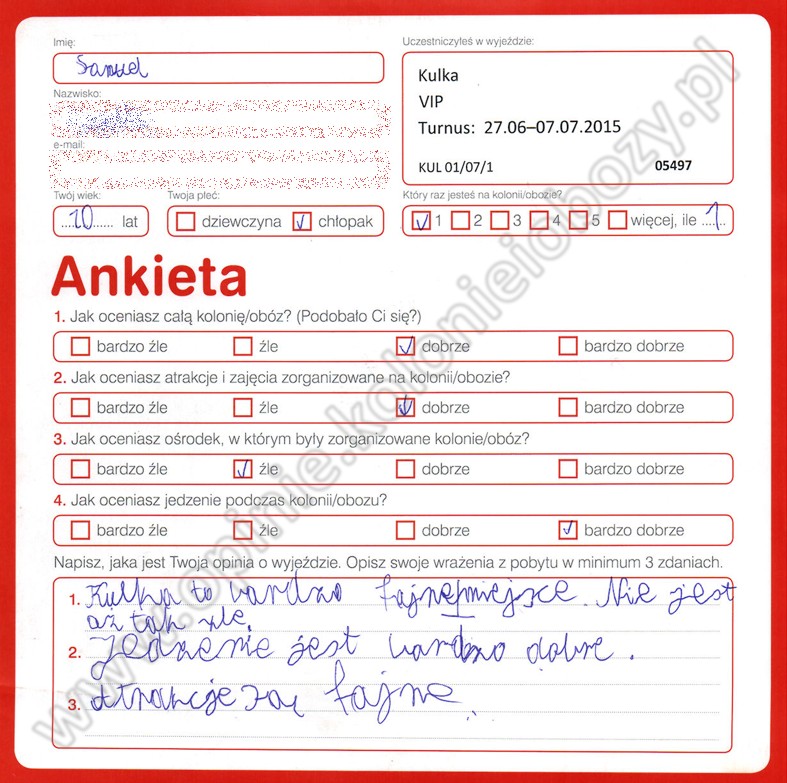 Imię:
Samuel
Nazwisko:
e-mail:
Twój wiek:
10 lat
Twoja płeć:
dziewczyna chłopak
Uczestniczyłeś w wyjeździe:
Kulka
VIP
Turnus: 27.06–07.07.2015
KUL 01/07/1 05497
Który raz jesteś na kolonii/obozie?
1 2 3 4 5 więcej, ile 1
Ankieta
1. Jak oceniasz całą kolonię/obóz? (Podobało Ci się?)
bardzo źle źle dobrze bardzo dobrze
2. Jak oceniasz atrakcje i zajęcia zorganizowane na kolonii/obozie?
bardzo źle źle dobrze bardzo dobrze
3. Jak oceniasz ośrodek, w którym były zorganizowane kolonie/obóz?
bardzo źle źle dobrze bardzo dobrze
4. Jak oceniasz jedzenie podczas kolonii/obozu?
bardzo źle źle dobrze bardzo dobrze
Napisz, jaka jest Twoja opinia o wyjeździe. Opisz swoje wrażenia z pobytu w minimum 3 zdaniach.
1. Kulka to bardzo fajne miejsce. Nie jest
aż tak źle.
2. Jedzenie jest bardzo dobre.
3. Atrakcje są fajne.
www.opinie.kolonieiobozy.pl